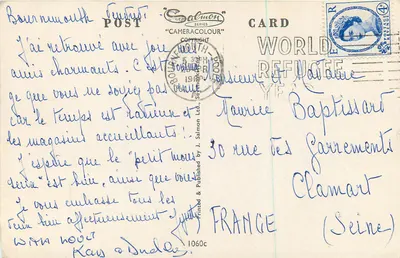 Bournemouth
POST
Salmon
SERIES
"CAMERACOLOUR"
COPYRIGHT
CARD
J'ai retrouvé avec joie
amis charmants. C'est
que vous ne soyez pas
car le temps est radieux et
les magasins accueillants!.
J'espère que le "petit mons
" est bien, ainsi que vous
Je vous embrasse tous les
bien affectueusement
WITH LOVE
Kay & Dudley
Printed & Published by J. Salmon Ltd.
1060c
BOURNEMOUTH-POOLE
WORLD
REFUGEE
YEAR
Monsieur et Madame
Maurice Baptissard
30 rue des Garrements
Clamart
FRANCE (Seine)
4D